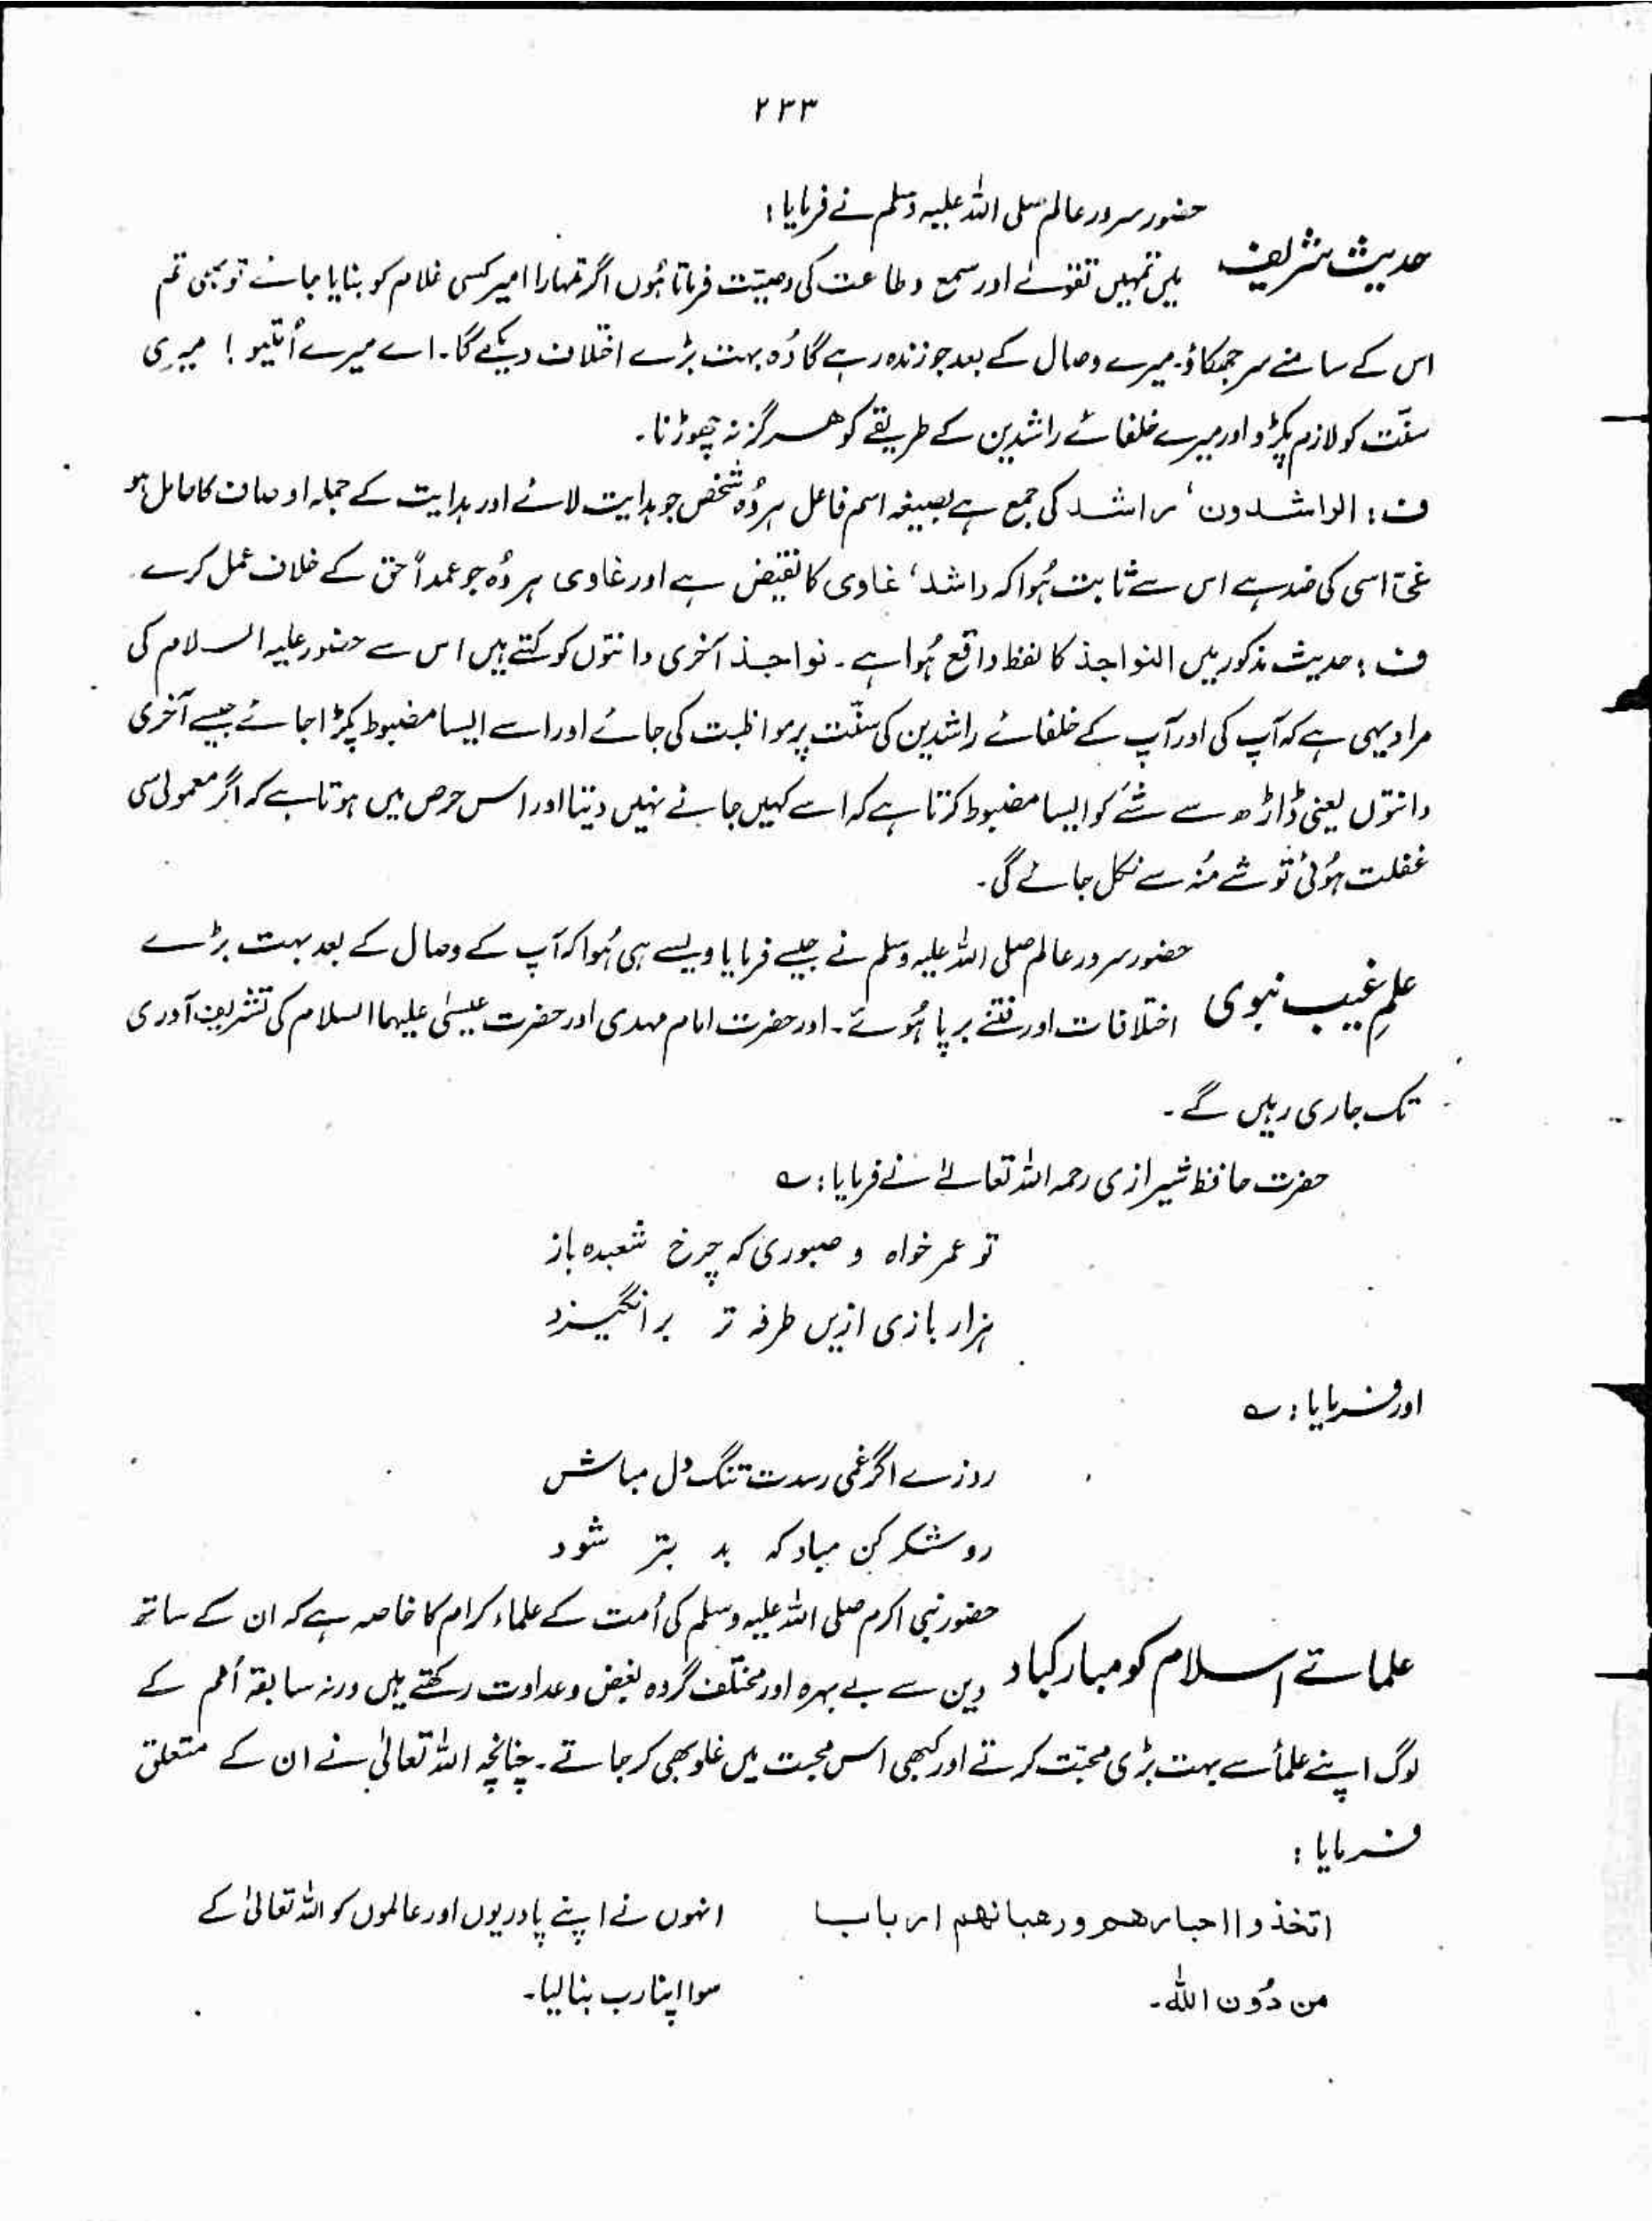 ۲۳۳
حضور سرور عالم صلی اللہ علیہ وسلم نے فرمایا:
حدیث شریف
میں تمہیں تقوےٰ اور سمع و طاعت کی وصیّت فرماتا ہُوں اگر تمہارا امیر کسی غلام کو بنایا جائے تو بھی تم
اس کے سامنے سر جھکاؤ۔ میرے وصال کے بعد جو زندہ رہے گا وُہ بہت بڑے اختلاف دیکھے گا۔ اے میرے اُمتیو! میری
سنّت کو لازم پکڑو اور میرے خلفائے راشدین کے طریقے کو ہرگز نہ چھوڑنا۔
ف: الراشدون، راشد کی جمع ہے بصیغہ اسم فاعل ہر وُہ شخص جو ہدایت لائے اور ہدایت کے جملہ اوصاف کا حامل ہو
غیّ اسی کی ضد ہے اس سے ثابت ہُوا کہ راشد، غاوی کا نقیض ہے اور غاوی ہر وُہ جو عمداً حق کے خلاف عمل کرے۔
ف: حدیث مذکور میں النواجذ کا لفظ واقع ہُوا ہے۔ نواجذ آخری دانتوں کو کہتے ہیں اس سے حضور علیہ السلام کی
مراد یہی ہے کہ آپ کی اور آپ کے خلفائے راشدین کی سنّت پر مواظبت کی جائے اور اسے ایسا مضبوط پکڑا جائے جیسے آخری
دانتوں یعنی ڈاڑھ سے شَے کو ایسا مضبوط کرتا ہے کہ اسے کہیں جانے نہیں دیتا اور اس حرص میں ہوتا ہے کہ اگر معمولی سی
غفلت ہُوئی تو شے مُنہ سے نکل جائے گی۔
حضور سرور عالم صلی اللہ علیہ وسلم نے جیسے فرمایا ویسے ہی ہُوا کہ آپ کے وصال کے بعد بہت بڑے
علمِ غیب نبوی
اختلافات اور فتنے برپا ہُوئے۔ اور حضرت امام مہدی اور حضرت عیسٰی علیہما السلام کی تشریف آوری
تک جاری رہیں گے۔
حضرت حافظ شیرازی رحمہ اللہ تعالےٰ نے فرمایا: ؎
تو عمر خواہ و صبوری کہ چرخ شعبدہ باز
ہزار بازی ازیں طرفہ تر بر انگیزد
اور فرمایا: ؎
روزے اگر غمی رسدت تنگ دل مباش
رو شکر کن مباد کہ بد بتر شود
حضور نبی اکرم صلی اللہ علیہ وسلم کی اُمت کے علماء کرام کا خاصہ ہے کہ ان کے ساتھ
علمائے اسلام کو مبارکباد
دین سے بے بہرہ اور مختلف گروہ بغض و عداوت رکھتے ہیں ورنہ سابقہ اُمم کے
لوگ اپنے علمأ سے بہت بڑی محبّت کرتے اور کبھی اس محبت میں غلو بھی کر جاتے۔ چنانچہ اللہ تعالیٰ نے ان کے متعلق
فرمایا:
اتخذوا احبارھم ورھبانھم ارباب
من دُون اللہ۔
انہوں نے اپنے پادریوں اور عالموں کو اللہ تعالیٰ کے
سوا اپنا رب بنا لیا۔